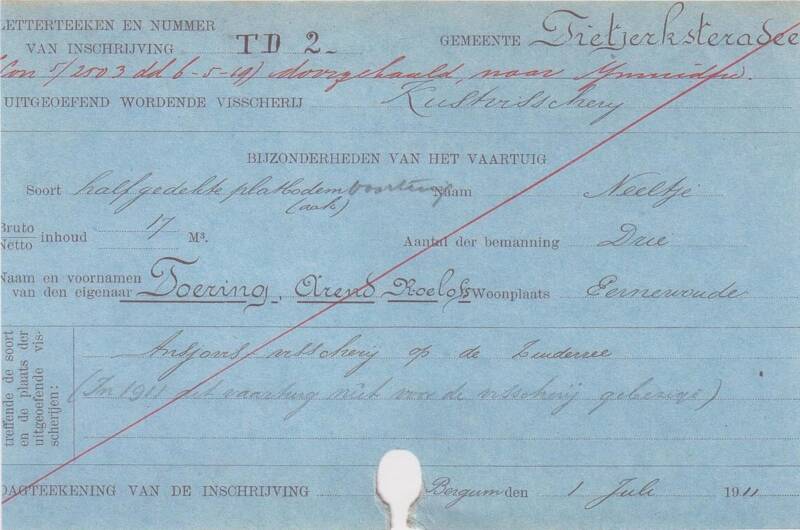 LETTERTEEKEN EN NUMMER
VAN INSCHRIJVING TD 2- GEMEENTE Tietjerksteradeel
5/2503 dd 6-5-19) doorgehaald, naar Ymuiden.
UITGEOEFEND WORDENDE VISSCHERIJ Kustvisscherij
BIJZONDERHEDEN VAN HET VAARTUIG
Soort half gedekte platbodem vaartuig Naam Neeltje
(aak)
Bruto
Netto inhoud 17 M³. Aantal der bemanning Drie
Naam en voornamen
van den eigenaar Toering, Arend Roelofs Woonplaats Eernewoude
treffende de soort
en de plaats der
uitgeoefende vis-
scherijen:
Ansjovis visscherij op de Zuiderzee
(In 1911 dit vaartuig niet voor de visscherij gebezigd)
DAGTEEKENING VAN DE INSCHRIJVING Bergum den 1 Juli 1911